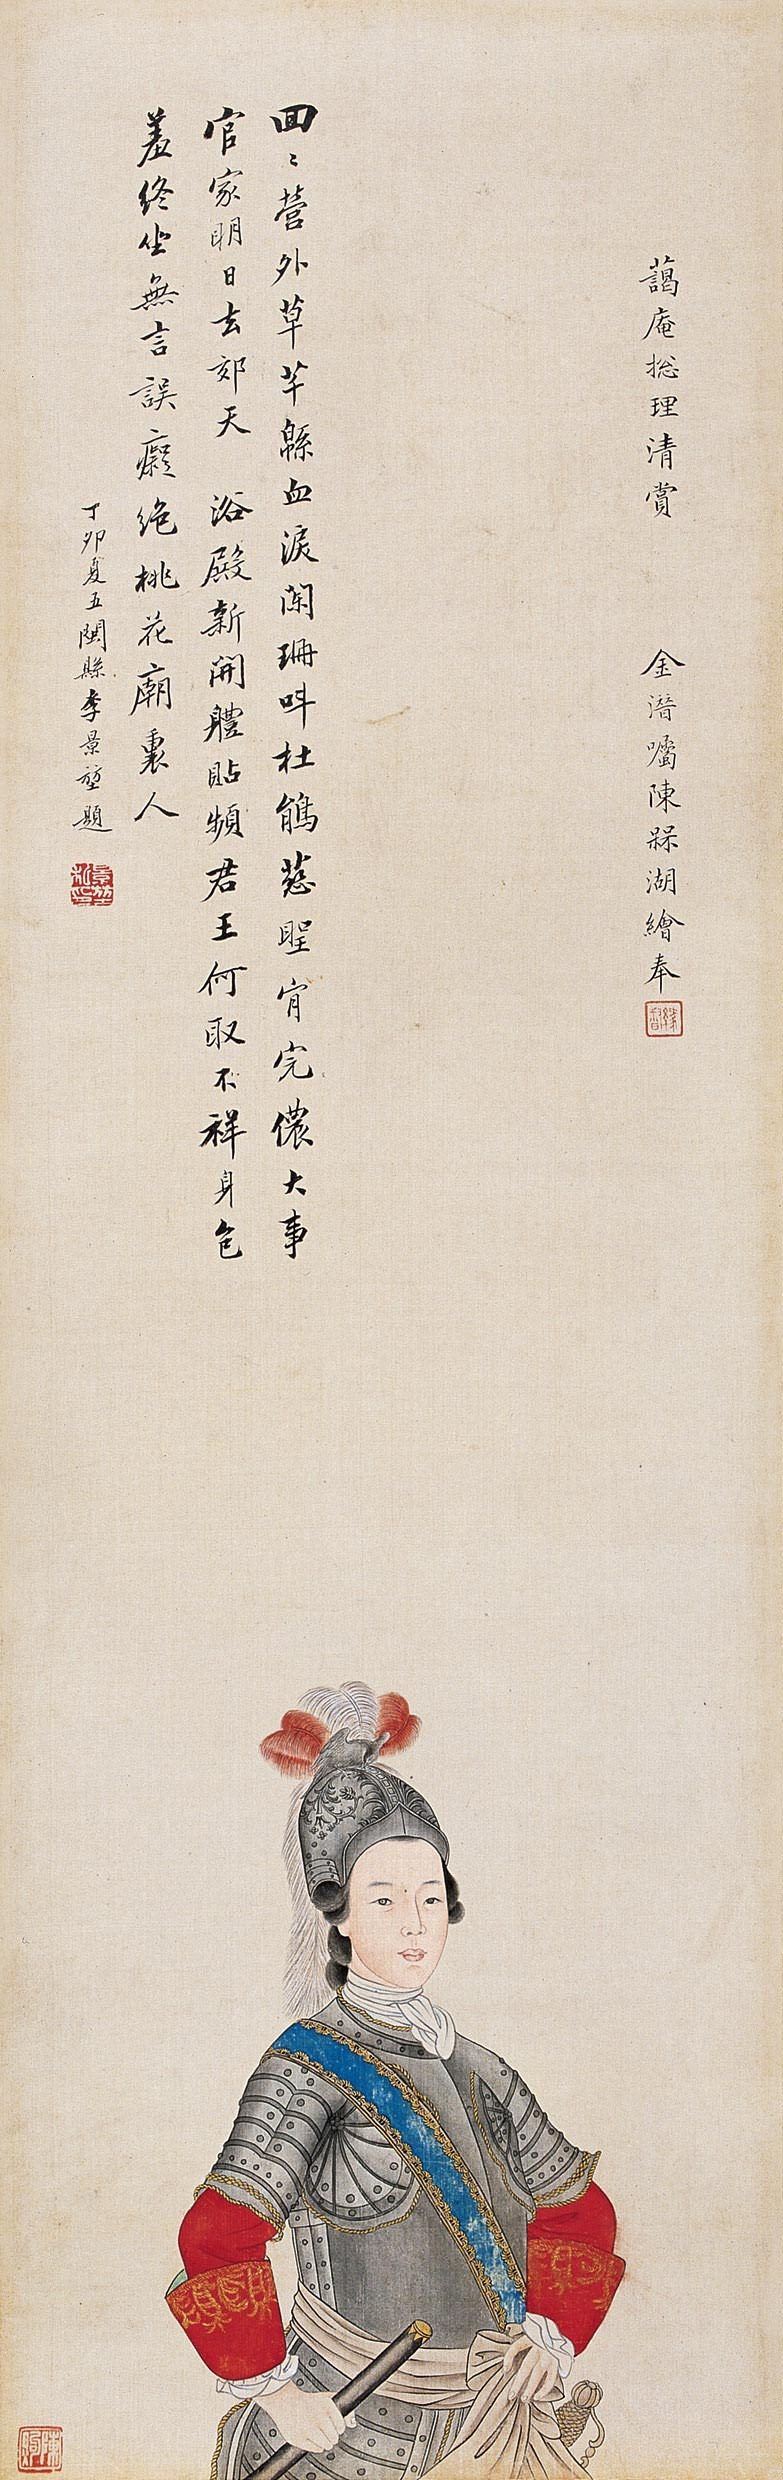 藹庵總理清賞
金潛囑陳冞湖繪奉
回〻營外草芊緜血淚闌珊叫杜鵑慈聖宵完儂大事
官家明日去郊天 浴殿新開體貼頻君王何取不祥身包
羞終坐無言誤癡絕桃花廟裏人
丁卯夏五閩縣李景堃題